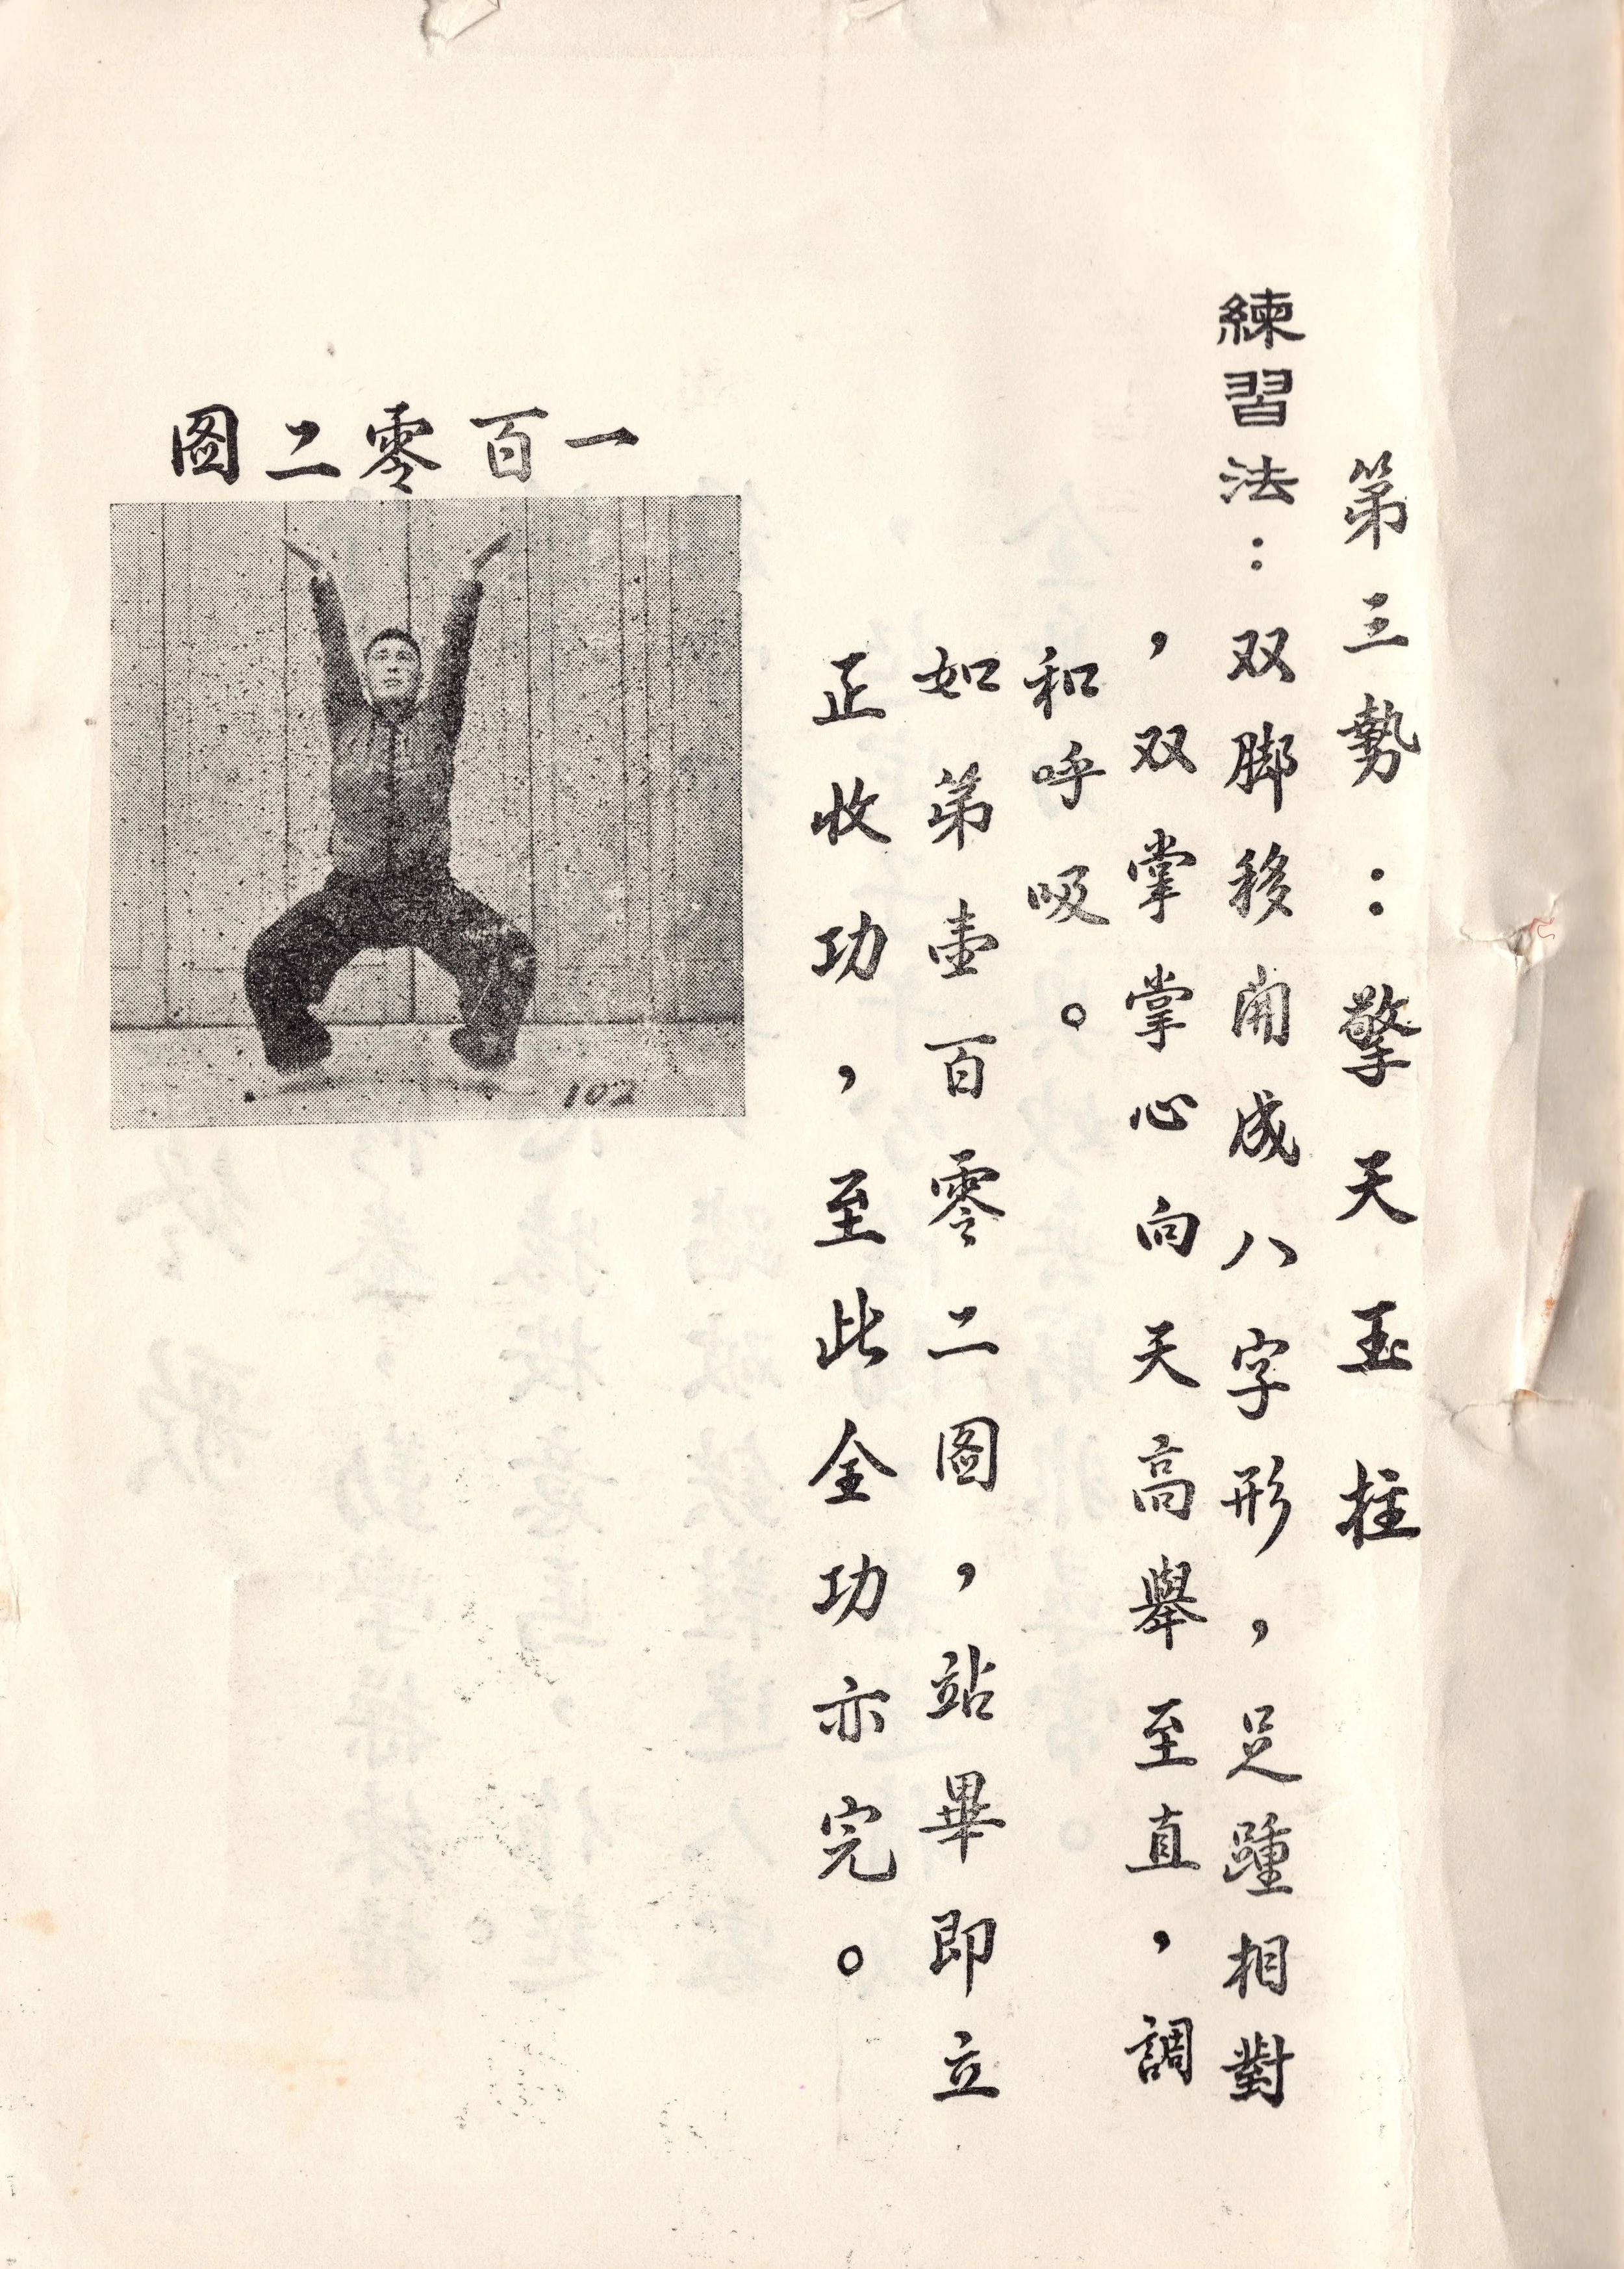 第三勢：擎天玉柱
練習法：双脚移開成八字形，足踵相對
，双掌掌心向天高舉至直，調
和呼吸。
如第壹百零二圖，站畢即立
正收功，至此全功亦完。
一百零二圖
102